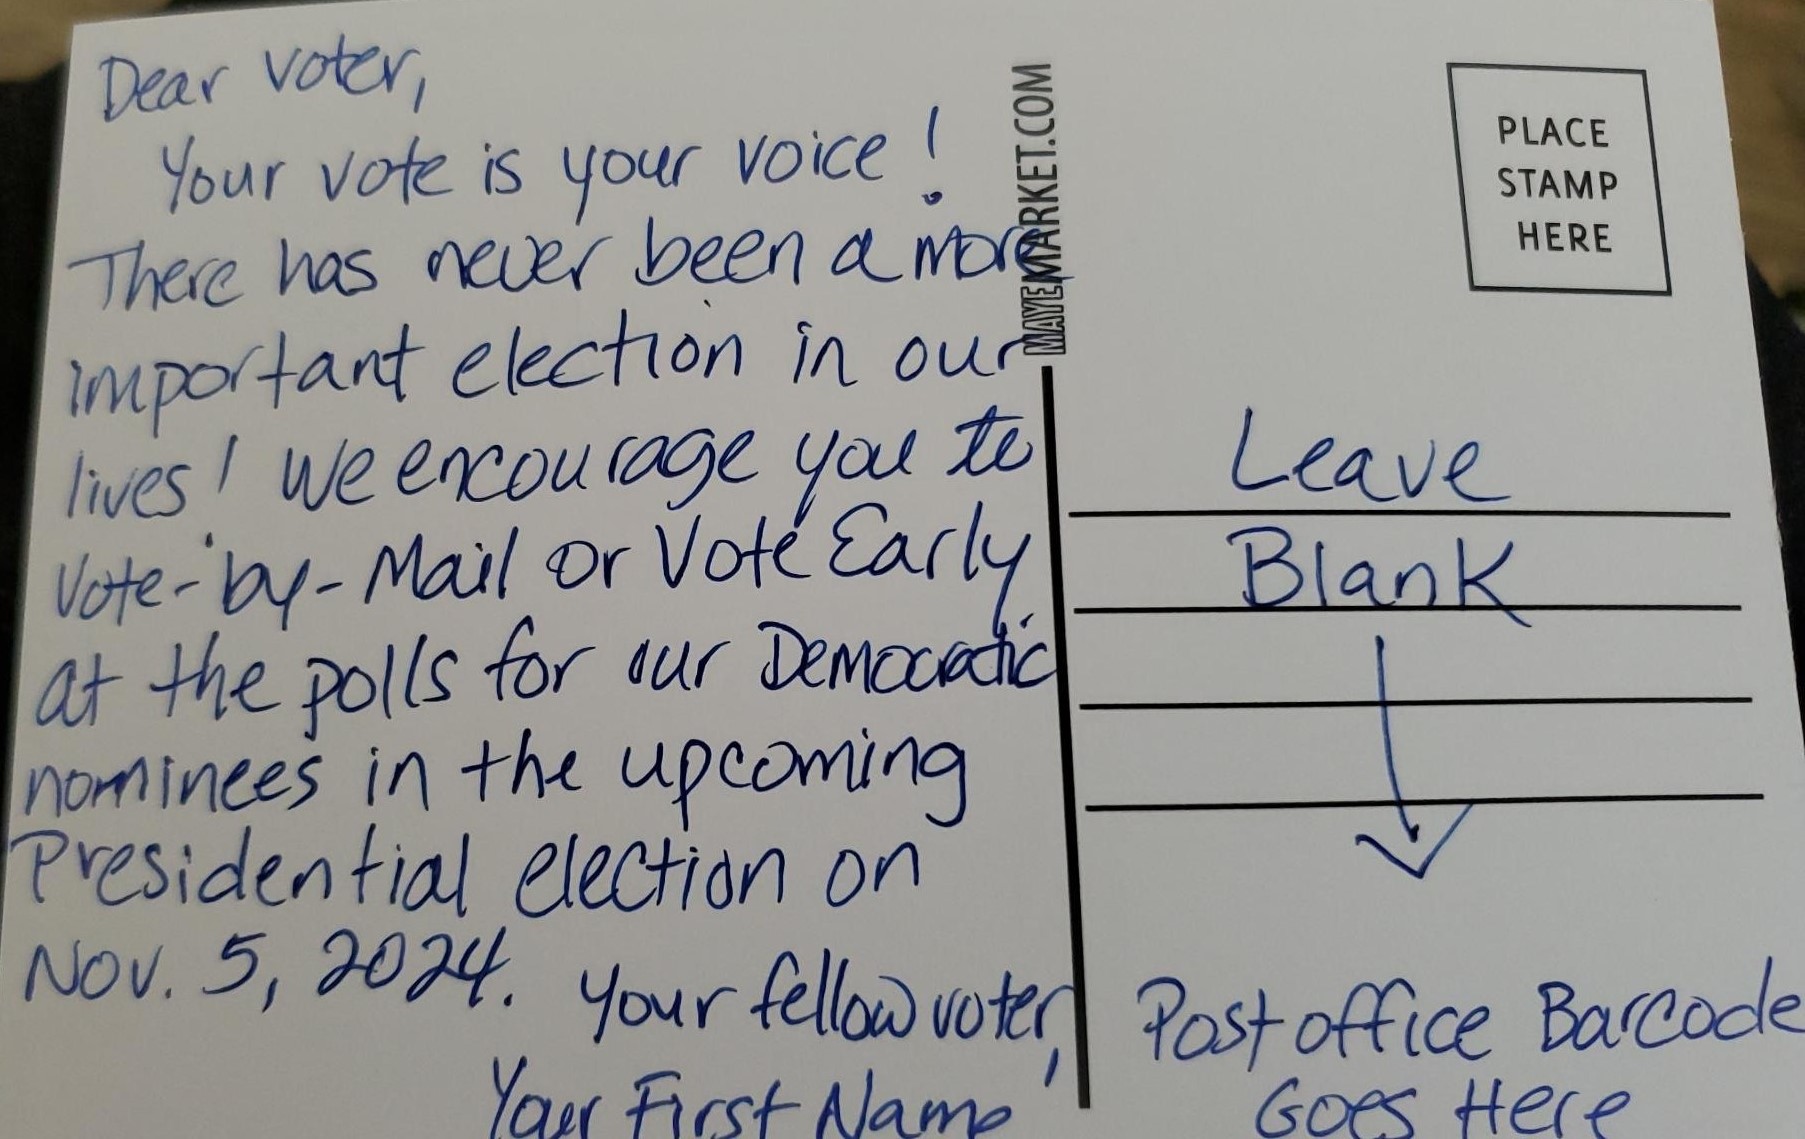 Dear voter,
Your vote is your voice!
There has never been a more
important election in our
lives! We encourage you to
Vote-by-Mail or Vote Early
at the polls for our Democratic
nominees in the upcoming
Presidential election on
Nov. 5, 2024.
Your fellow voter,
Your First Name
MAYEMARKET.COM
PLACE
STAMP
HERE
Leave
Blank
Post office Barcode
Goes Here